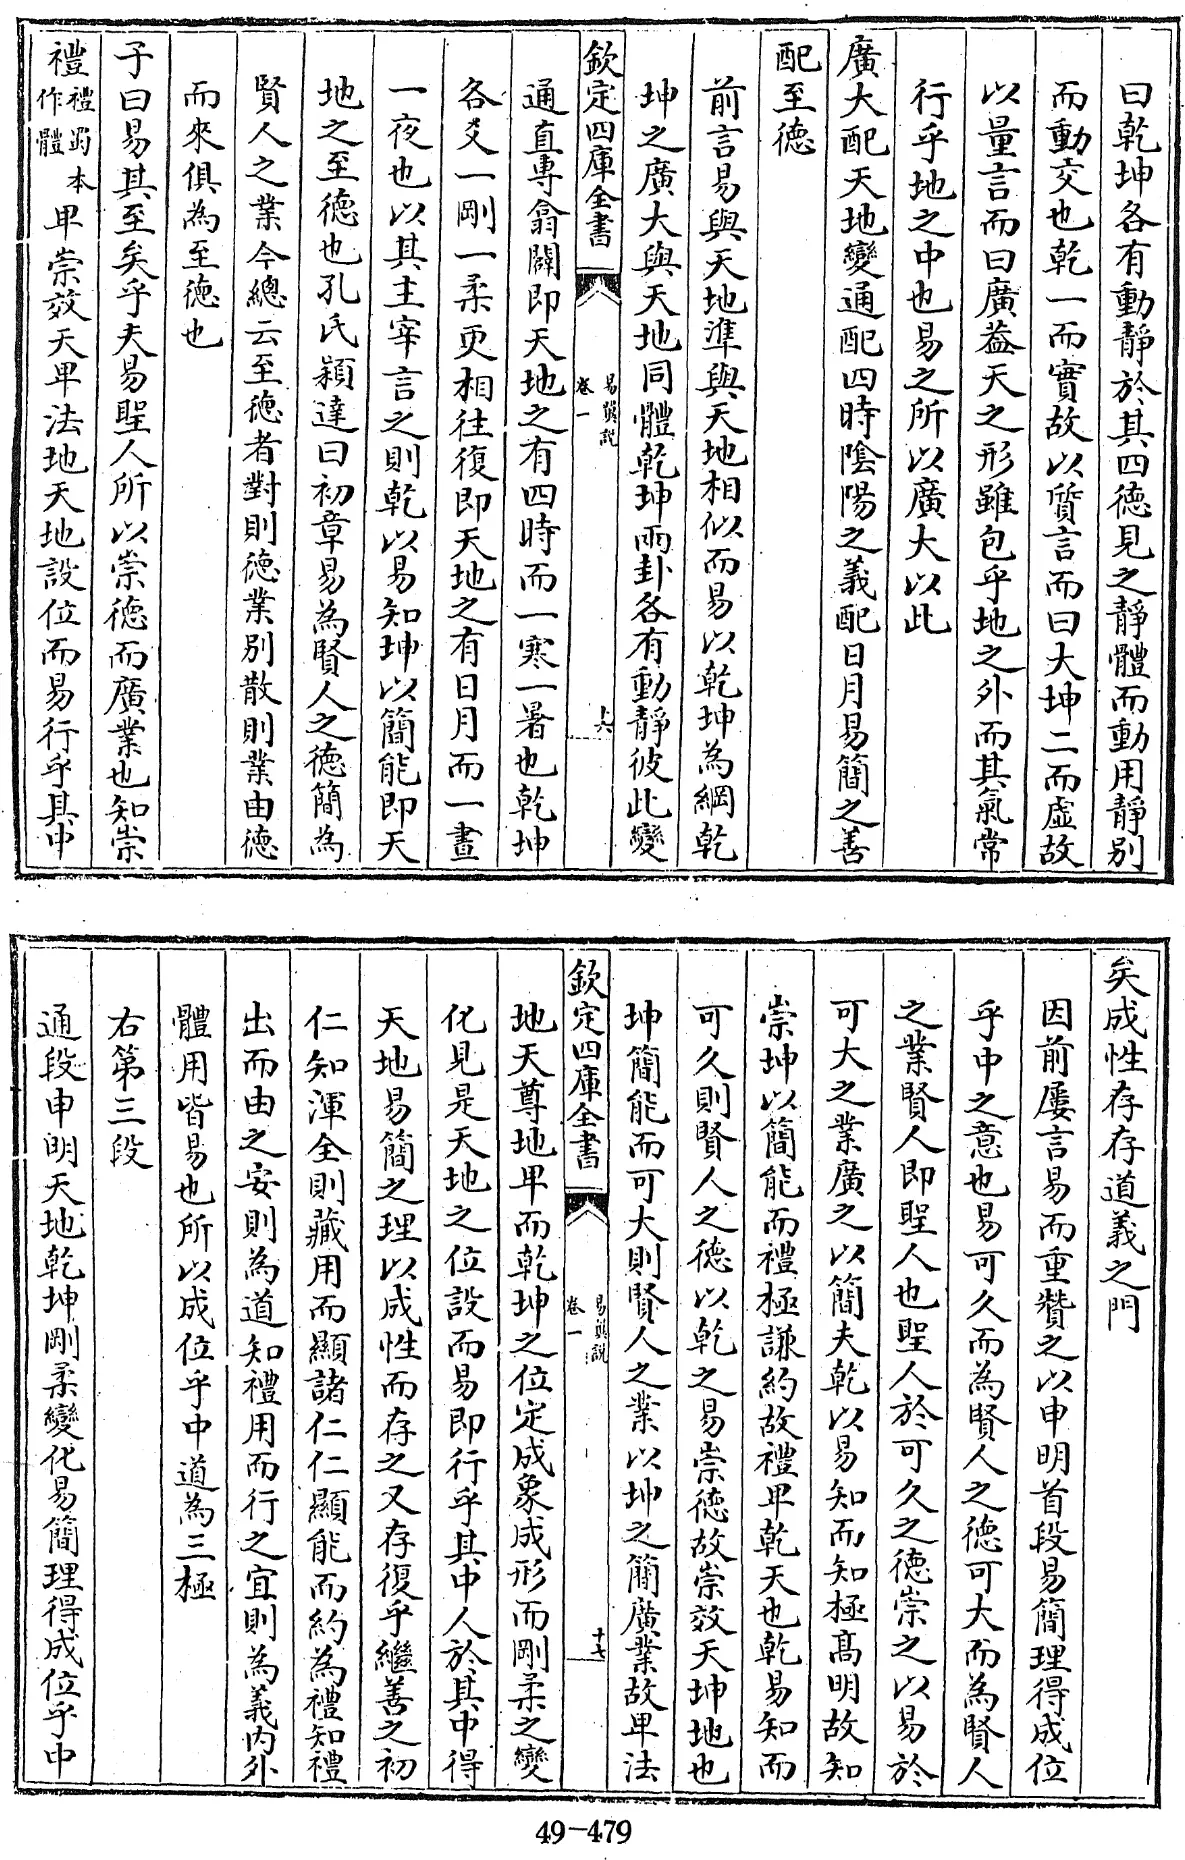 曰乾坤各有動靜於其四德見之靜體而動用靜別
而動交也乾一而實故以質言而曰大坤二而虛故
以量言而曰廣蓋天之形雖包乎地之外而其氣常
行乎地之中也易之所以廣大以此
廣大配天地變通配四時陰陽之義配日月易簡之善
配至德
前言易與天地準與天地相似而易以乾坤為綱乾
坤之廣大與天地同體乾坤兩卦各有動靜彼此變
欽定四庫全書
易翼說
卷一
十六
通直專翕闢即天地之有四時而一寒一暑也乾坤
各爻一剛一柔更相往復即天地之有日月而一晝
一夜也以其主宰言之則乾以易知坤以簡能即天
地之至德也孔氏穎達曰初章易為賢人之德簡為
賢人之業今總云至德者對則德業別散則業由德
而來俱為至德也
子曰易其至矣乎夫易聖人所以崇德而廣業也知崇
禮禮蜀本作體卑崇效天卑法地天地設位而易行乎其中
矣成性存存道義之門
因前屢言易而重贊之以申明首段易簡理得成位
乎中之意也易可久而為賢人之德可大而為賢人
之業賢人即聖人也聖人於可久之德崇之以易於
可大之業廣之以簡夫乾以易知而知極高明故知
崇坤以簡能而禮極謙約故禮卑乾天也乾易知而
可久則賢人之德以乾之易崇德故崇效天坤地也
坤簡能而可大則賢人之業以坤之簡廣業故卑法
欽定四庫全書
易翼說
卷一
十七
地天尊地卑而乾坤之位定成象成形而剛柔之變
化見是天地之位設而易即行乎其中人於其中得
天地易簡之理以成性而存之又存復乎繼善之初
仁知渾全則藏用而顯諸仁仁顯能而約為禮知禮
出而由之安則為道知禮用而行之宜則為義內外
體用皆易也所以成位乎中道為三極
右第三段
通段申明天地乾坤剛柔變化易簡理得成位乎中
49-479